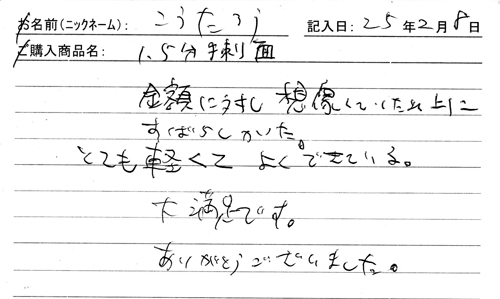 お名前(ニックネーム): こうたろう 記入日: 25年2月8日
ご購入商品名: 1.5分半刺面
金額に対し 想像していた以上に
すばらしかった。
とても軽くて よくできている。
大満足です。
ありがとうございました。